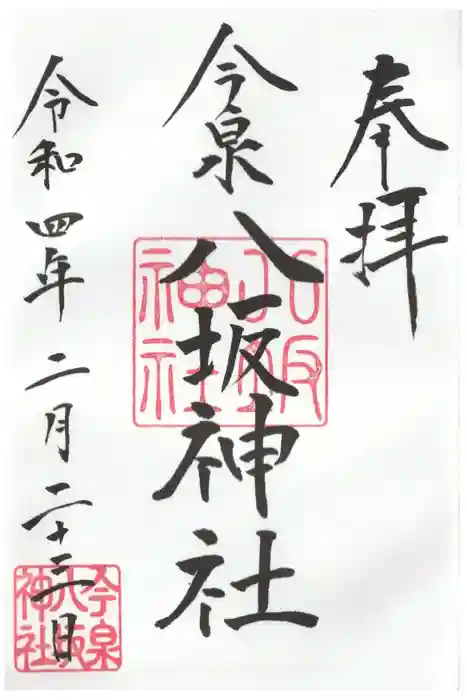 奉拝
今泉
八坂神社
八坂神社
令和四年二月二十三日
今泉八坂神社